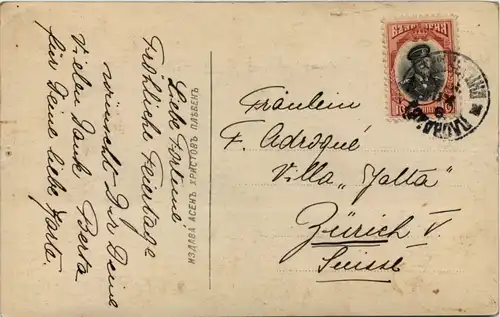 Liebe Hortense
Fröhliche Feiertage
wünscht Dir Deine
Vielen Dank Berta
für Deine liebe Karte.
ИЗДАВА АСЕНЪ ХРИСТОВЪ ПЛѢВЕНЪ
Fräulein
F. Adroqué
Villa „Yalta"
Zürich V.
Suisse
БЪЛГАРИЯ